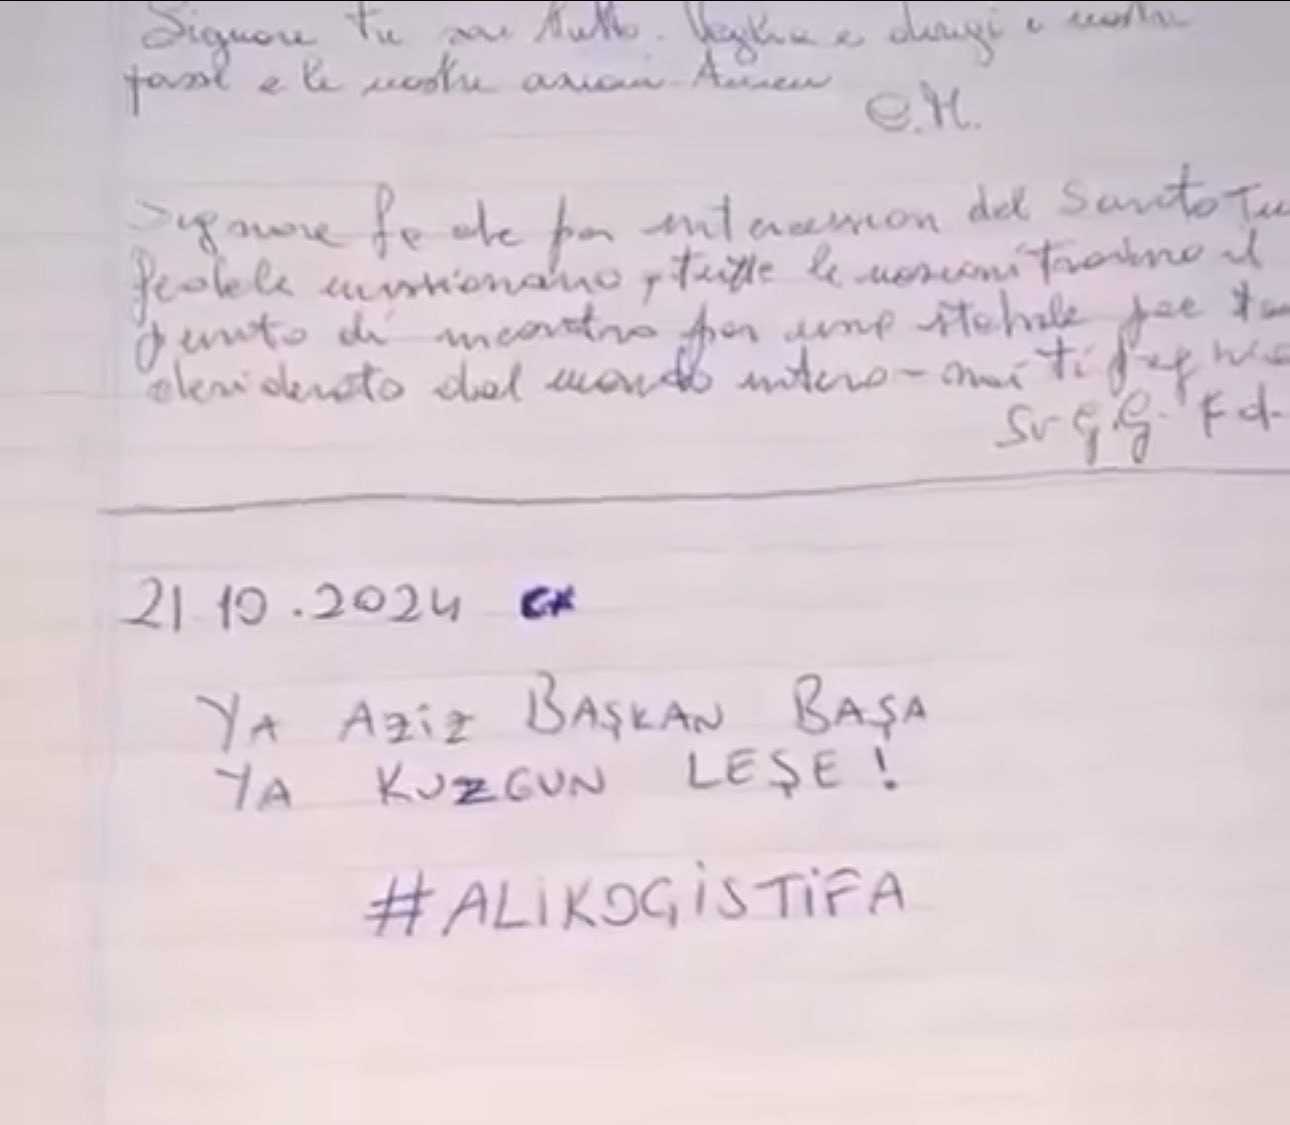 Signore tu sai tutto. Veglia e dirigi i nostri
passi e le nostre azioni. Amen
C.M.
Signore fa che per intercession del Santo Tuo
fedele missionario, tutte le nazioni trovino il
punto di incontro per una stabile
desiderato dal mondo intero - noi ti
Sr G.G. F.d.
21.10.2024
YA AZİZ BAŞKAN BAŞA
YA KUZGUN LEŞE!
#ALİKOÇİSTİFA